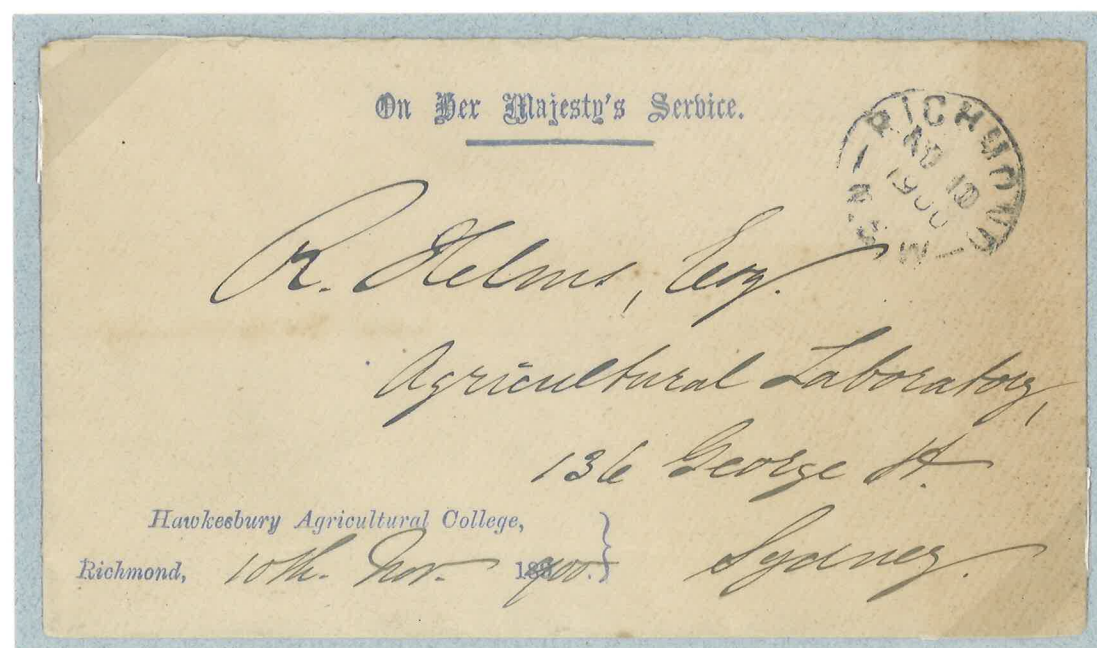 On Her Majesty's Service.
RICHMOND
10
1900
N.S.W
R. Helms, Esq.
Agricultural Laboratory,
136 George St.
Sydney.
Hawkesbury Agricultural College,
Richmond, 10th. Nov. 1900.